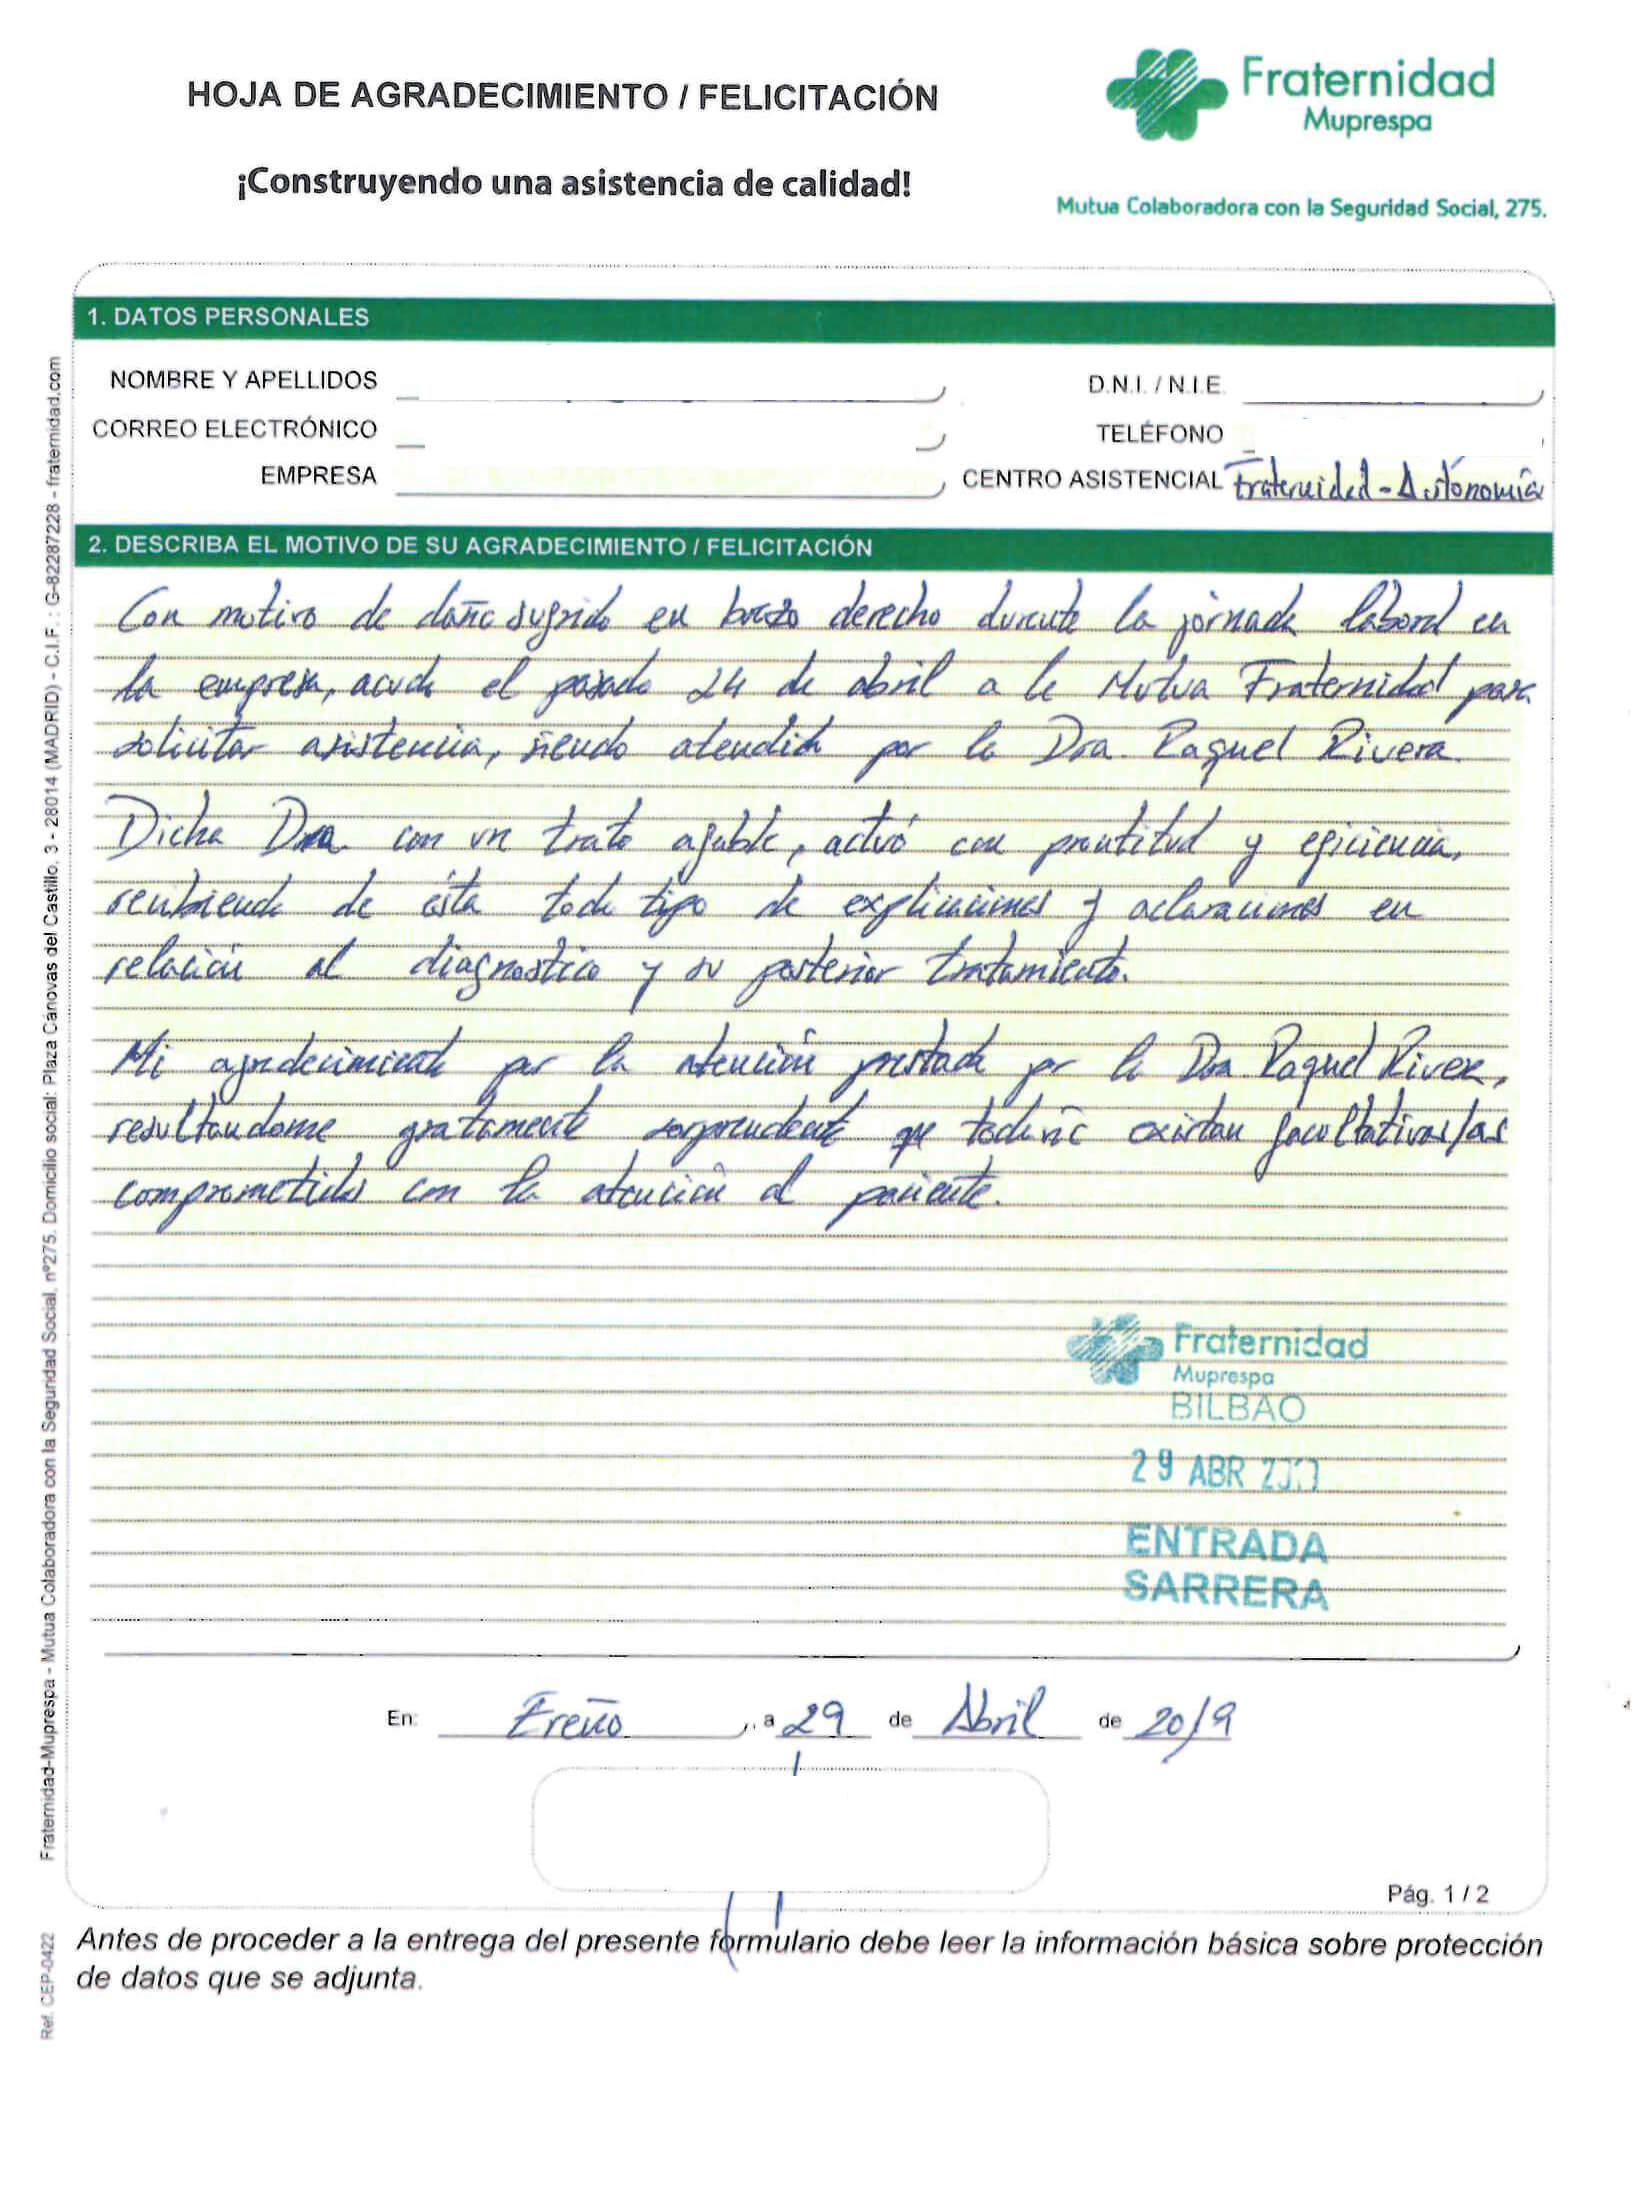 HOJA DE AGRADECIMIENTO / FELICITACIÓN
¡Construyendo una asistencia de calidad!
Fraternidad
Muprespa
Mutua Colaboradora con la Seguridad Social, 275.
1. DATOS PERSONALES
NOMBRE Y APELLIDOS
D.N.I. / N.I.E.
CORREO ELECTRÓNICO
TELÉFONO
EMPRESA
CENTRO ASISTENCIAL Fraternidad - Autonomía
2. DESCRIBA EL MOTIVO DE SU AGRADECIMIENTO / FELICITACIÓN
Con motivo de daño sufrido en brazo derecho durante la jornada laboral en
la empresa, acudo el pasado 24 de abril a la Mutua Fraternidad para
solicitar asistencia, siendo atendido por la Dra. Raquel Rivera.
Dicha Dra con un trato afable, actuó con prontitud y eficiencia,
recibiendo de ésta todo tipo de explicaciones y aclaraciones en
relación al diagnostico y su posterior tratamiento.
Mi agradecimiento por la atención prestada por la Dra. Raquel Rivera,
resultandome gratamente sorprendente que todavía existan facultativos/as
comprometidos con la atención al paciente.
Fraternidad
Muprespa
BILBAO
29 ABR
ENTRADA
SARRERA
En: Ereño, a 29 de Abril de 2019
Pág. 1 / 2
Antes de proceder a la entrega del presente formulario debe leer la información básica sobre protección
de datos que se adjunta.
Fraternidad-Muprespa - Mutua Colaboradora con la Seguridad Social, nº275. Domicilio social: Plaza Cánovas del Castillo, 3 - 28014 (MADRID) - C.I.F. : G-82287228 - fraternidad.com
Ref. CEP-0422